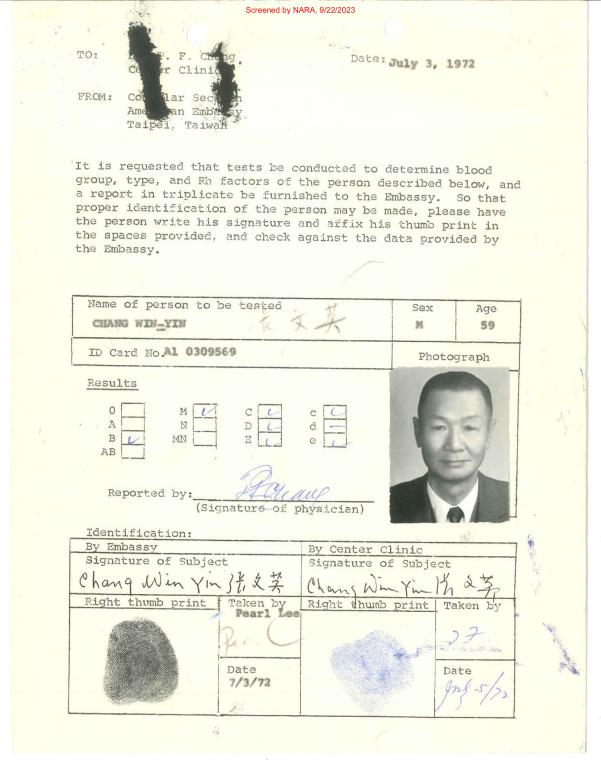 Screened by NARA, 9/22/2023
TO: F. F. Chang
Center Clinic
Date: July 3, 1972
FROM: Consular Section
American Embassy
Taipei, Taiwan
It is requested that tests be conducted to determine blood
group, type, and Rh factors of the person described below, and
a report in triplicate be furnished to the Embassy. So that
proper identification of the person may be made, please have
the person write his signature and affix his thumb print in
the spaces provided, and check against the data provided by
the Embassy.
Name of person to be tested
CHANG WIN-YIN 張文英
Sex
M
Age
59
ID Card No. A1 0309569
Photograph
Results
O M C c
A N D d
B MN E e
AB
Reported by:
(Signature of physician)
Identification:
By Embassy By Center Clinic
Signature of Subject Signature of Subject
Chang Win Yin 張文英 Chang Win Yin 張文英
Right thumb print Taken by Right thumb print Taken by
Pearl Lee
Date
7/3/72
Date
July 5/72